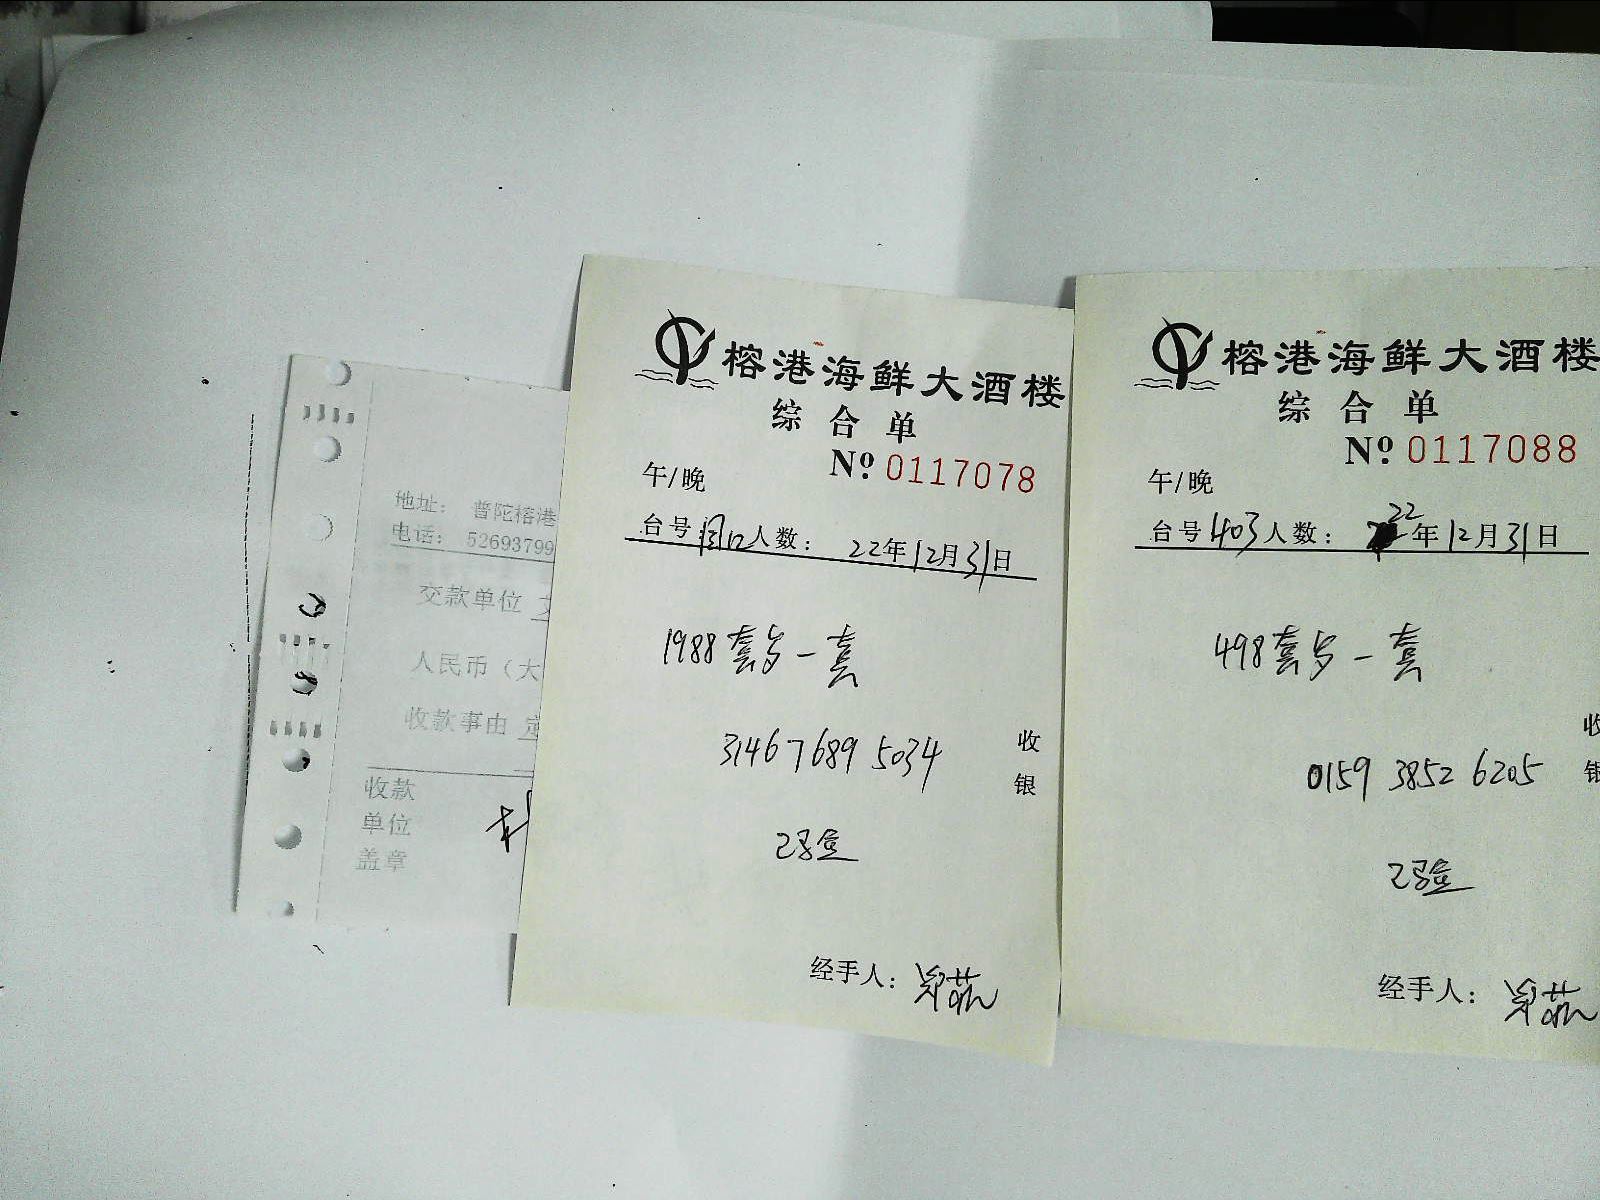 地址： 普陀榕港
电话： 52693799
交款单位
人民币（大
收款事由 定
收款
单位
盖章
榕港海鲜大酒楼
综合单
№ 0117078
午/晚
台号 人数： 22年12月31日
1988套 一套
3146 7689 5034
收
银
已验
经手人：
榕港海鲜大酒楼
综合单
№ 0117088
午/晚
台号 403 人数： 22年12月31日
498套 一套
0159 3852 6205
收
银
已验
经手人：